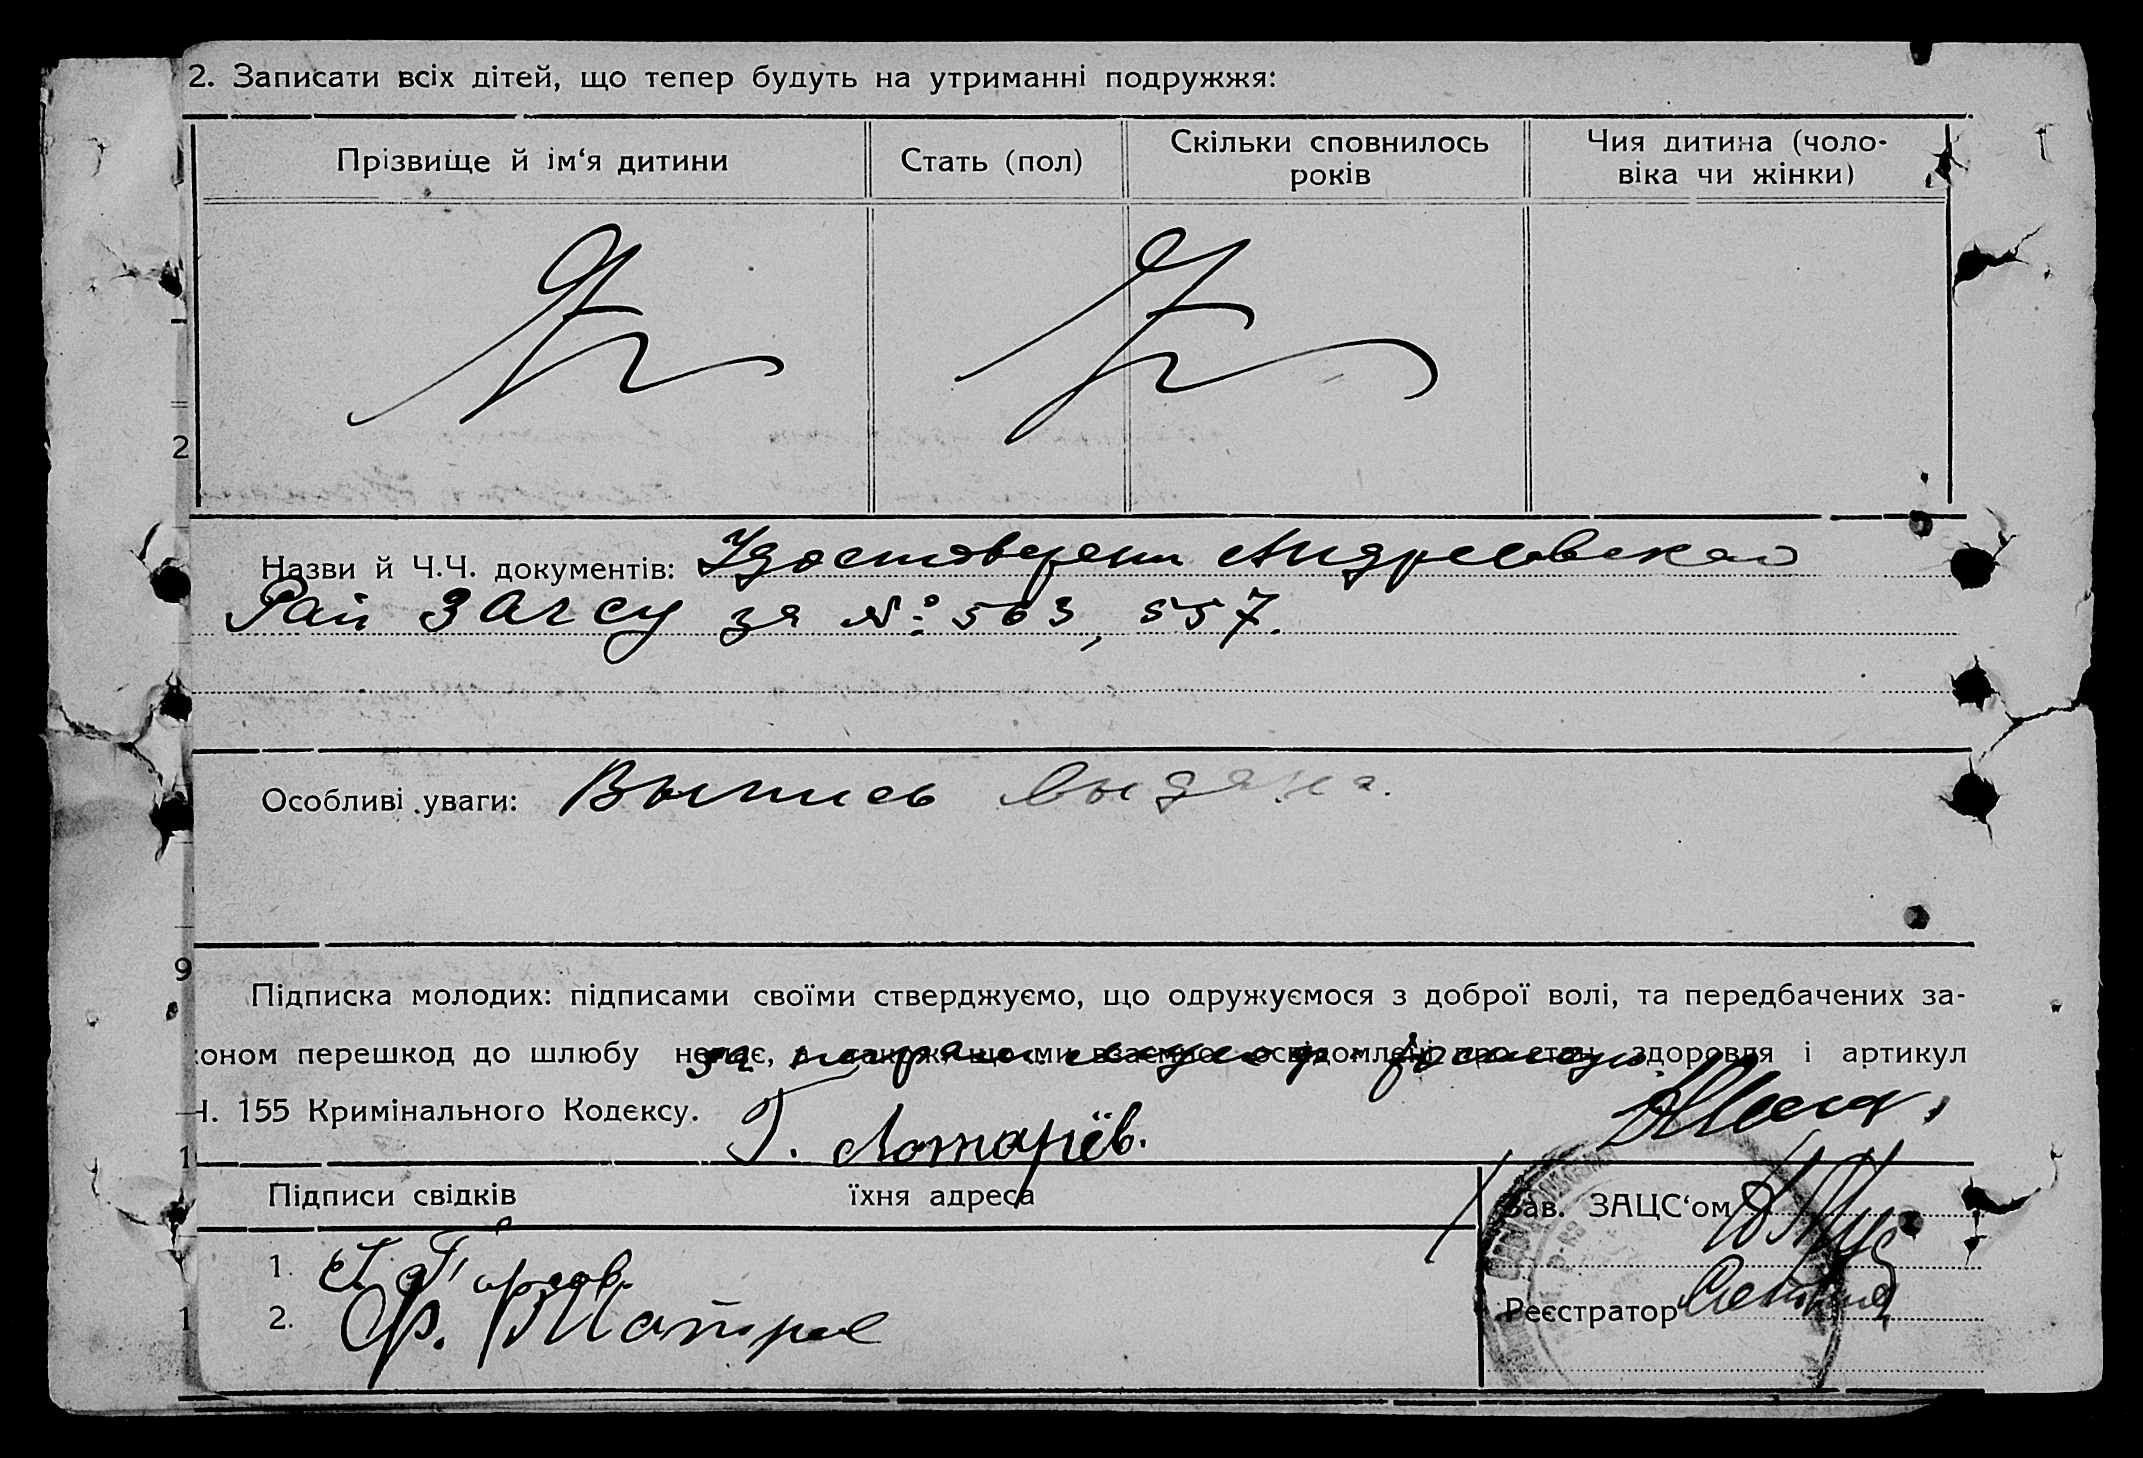 2. Записати всіх дітей, що тепер будуть на утриманні подружжя:
Прізвище й ім‘я дитини
Стать (пол)
Скільки сповнилось
років
Чия дитина (чоло-
віка чи жінки)
2
Назви й Ч.Ч. документів: Удостоверения Андреевского
Рай Загсу за №: 563, 557.
Особливі уваги: Выпись выдана.
9
Підписка молодих: підписами своїми стверджуємо, що одружуємося з доброї волі, та передбачених за-
коном перешкод до шлюбу немає, а також що ми взаємно освідомлені про стан здоровля і артикул
Ч. 155 Кримінального Кодексу.
Г. Лотарёв.
1
Підписи свідків
їхня адреса
Зав. ЗАЦС‘ом
1.
1
2. Ф.
Реєстратор